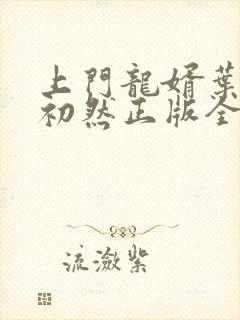 上門龍婿葉
初然正版全
流瀲紫